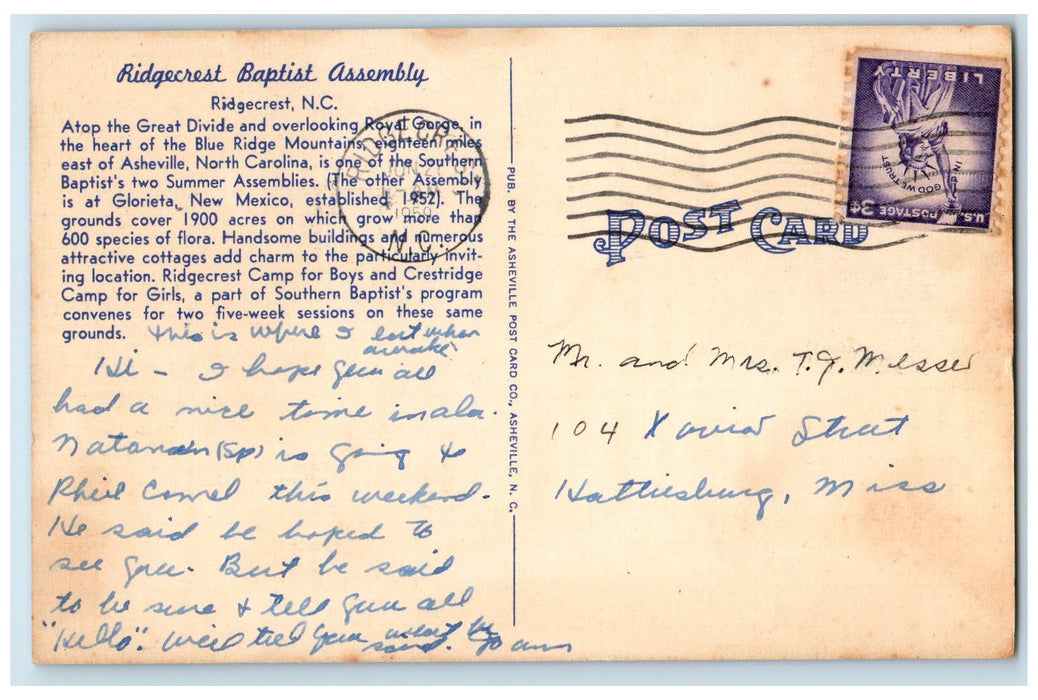 Ridgecrest Baptist Assembly
Ridgecrest, N.C.
Atop the Great Divide and overlooking Royal Gorge, in
the heart of the Blue Ridge Mountains, eighteen miles
east of Asheville, North Carolina, is one of the Southern
Baptist's two Summer Assemblies. (The other Assembly
is at Glorieta, New Mexico, established 1952). The
grounds cover 1900 acres on which grow more than
600 species of flora. Handsome buildings and numerous
attractive cottages add charm to the particularly invit-
ing location. Ridgecrest Camp for Boys and Crestridge
Camp for Girls, a part of Southern Baptist's program
convenes for two five-week sessions on these same
grounds.
this is where I eat when
awake
Hi - I hope you all
had a nice time in ala.
(Sp) is going to
this weekend.
He said he hoped to
see you. But he said
to be sure & tell you all
"Hello". We'll tell you what he
said. Jo ann
PUB. BY THE ASHEVILLE POST CARD CO., ASHEVILLE, N. C.
RIDGECREST
JUN 2
1959
N.C.
POST CARD
LIBERTY
IN GOD WE TRUST
U.S. POSTAGE 3¢
Mr. and Mrs. T.J. Messer
104 Street
Hattiesburg, Miss